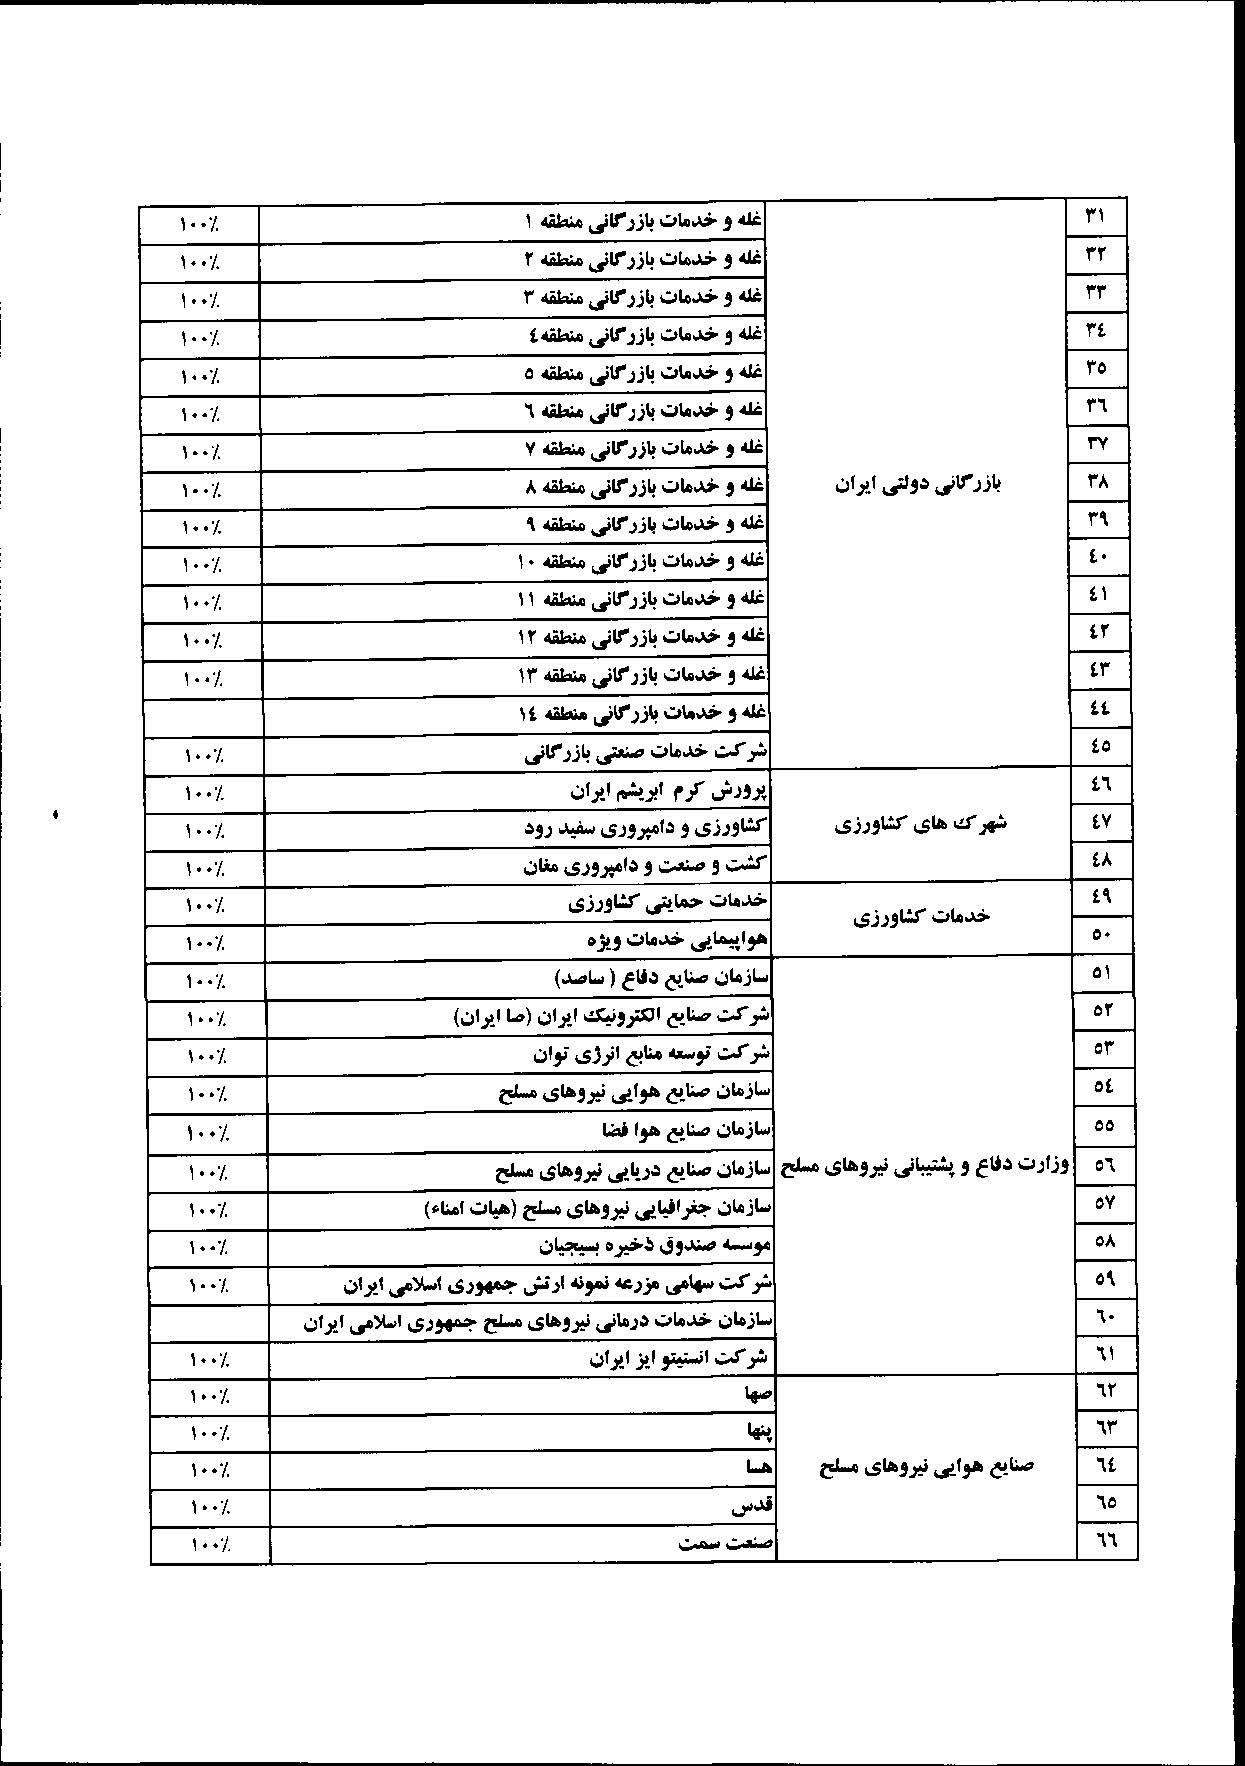 ۳۱ غله و خدمات بازرگانی منطقه ۱ ۱۰۰٪
۳۲ غله و خدمات بازرگانی منطقه ۲ ۱۰۰٪
۳۳ غله و خدمات بازرگانی منطقه ۳ ۱۰۰٪
۳٤ غله و خدمات بازرگانی منطقه٤ ۱۰۰٪
۳۵ غله و خدمات بازرگانی منطقه ۵ ۱۰۰٪
۳٦ غله و خدمات بازرگانی منطقه ٦ ۱۰۰٪
۳۷ غله و خدمات بازرگانی منطقه ۷ ۱۰۰٪
۳۸ بازرگانی دولتی ایران غله و خدمات بازرگانی منطقه ۸ ۱۰۰٪
۳۹ غله و خدمات بازرگانی منطقه ۹ ۱۰۰٪
٤۰ غله و خدمات بازرگانی منطقه ۱۰ ۱۰۰٪
٤۱ غله و خدمات بازرگانی منطقه ۱۱ ۱۰۰٪
٤۲ غله و خدمات بازرگانی منطقه ۱۲ ۱۰۰٪
٤۳ غله و خدمات بازرگانی منطقه ۱۳ ۱۰۰٪
٤٤ غله و خدمات بازرگانی منطقه ۱٤
٤۵ شرکت خدمات صنعتی بازرگانی ۱۰۰٪
٤٦ پرورش کرم ابریشم ایران ۱۰۰٪
٤۷ شهرک های کشاورزی کشاورزی و دامپروری سفید رود ۱۰۰٪
٤۸ کشت و صنعت و دامپروری مغان ۱۰۰٪
٤۹ خدمات کشاورزی خدمات حمایتی کشاورزی ۱۰۰٪
۵۰ هواپیمایی خدمات ویژه ۱۰۰٪
۵۱ سازمان صنایع دفاع ( ساصد) ۱۰۰٪
۵۲ شرکت صنایع الکترونیک ایران (صا ایران) ۱۰۰٪
۵۳ شرکت توسعه منابع انرژی توان ۱۰۰٪
۵٤ سازمان صنایع هوایی نیروهای مسلح ۱۰۰٪
۵۵ سازمان صنایع هوا فضا ۱۰۰٪
۵٦ وزارت دفاع و پشتیبانی نیروهای مسلح سازمان صنایع دریایی نیروهای مسلح ۱۰۰٪
۵۷ سازمان جغرافیایی نیروهای مسلح (هیات امناء) ۱۰۰٪
۵۸ موسسه صندوق ذخیره بسیجیان ۱۰۰٪
۵۹ شرکت سهامی مزرعه نمونه ارتش جمهوری اسلامی ایران ۱۰۰٪
٦۰ سازمان خدمات درمانی نیروهای مسلح جمهوری اسلامی ایران
٦۱ شرکت انستیتو ایز ایران ۱۰۰٪
٦۲ صها ۱۰۰٪
٦۳ پنها ۱۰۰٪
٦٤ صنایع هوایی نیروهای مسلح هسا ۱۰۰٪
٦۵ قدس ۱۰۰٪
٦٦ صنعت سمت ۱۰۰٪